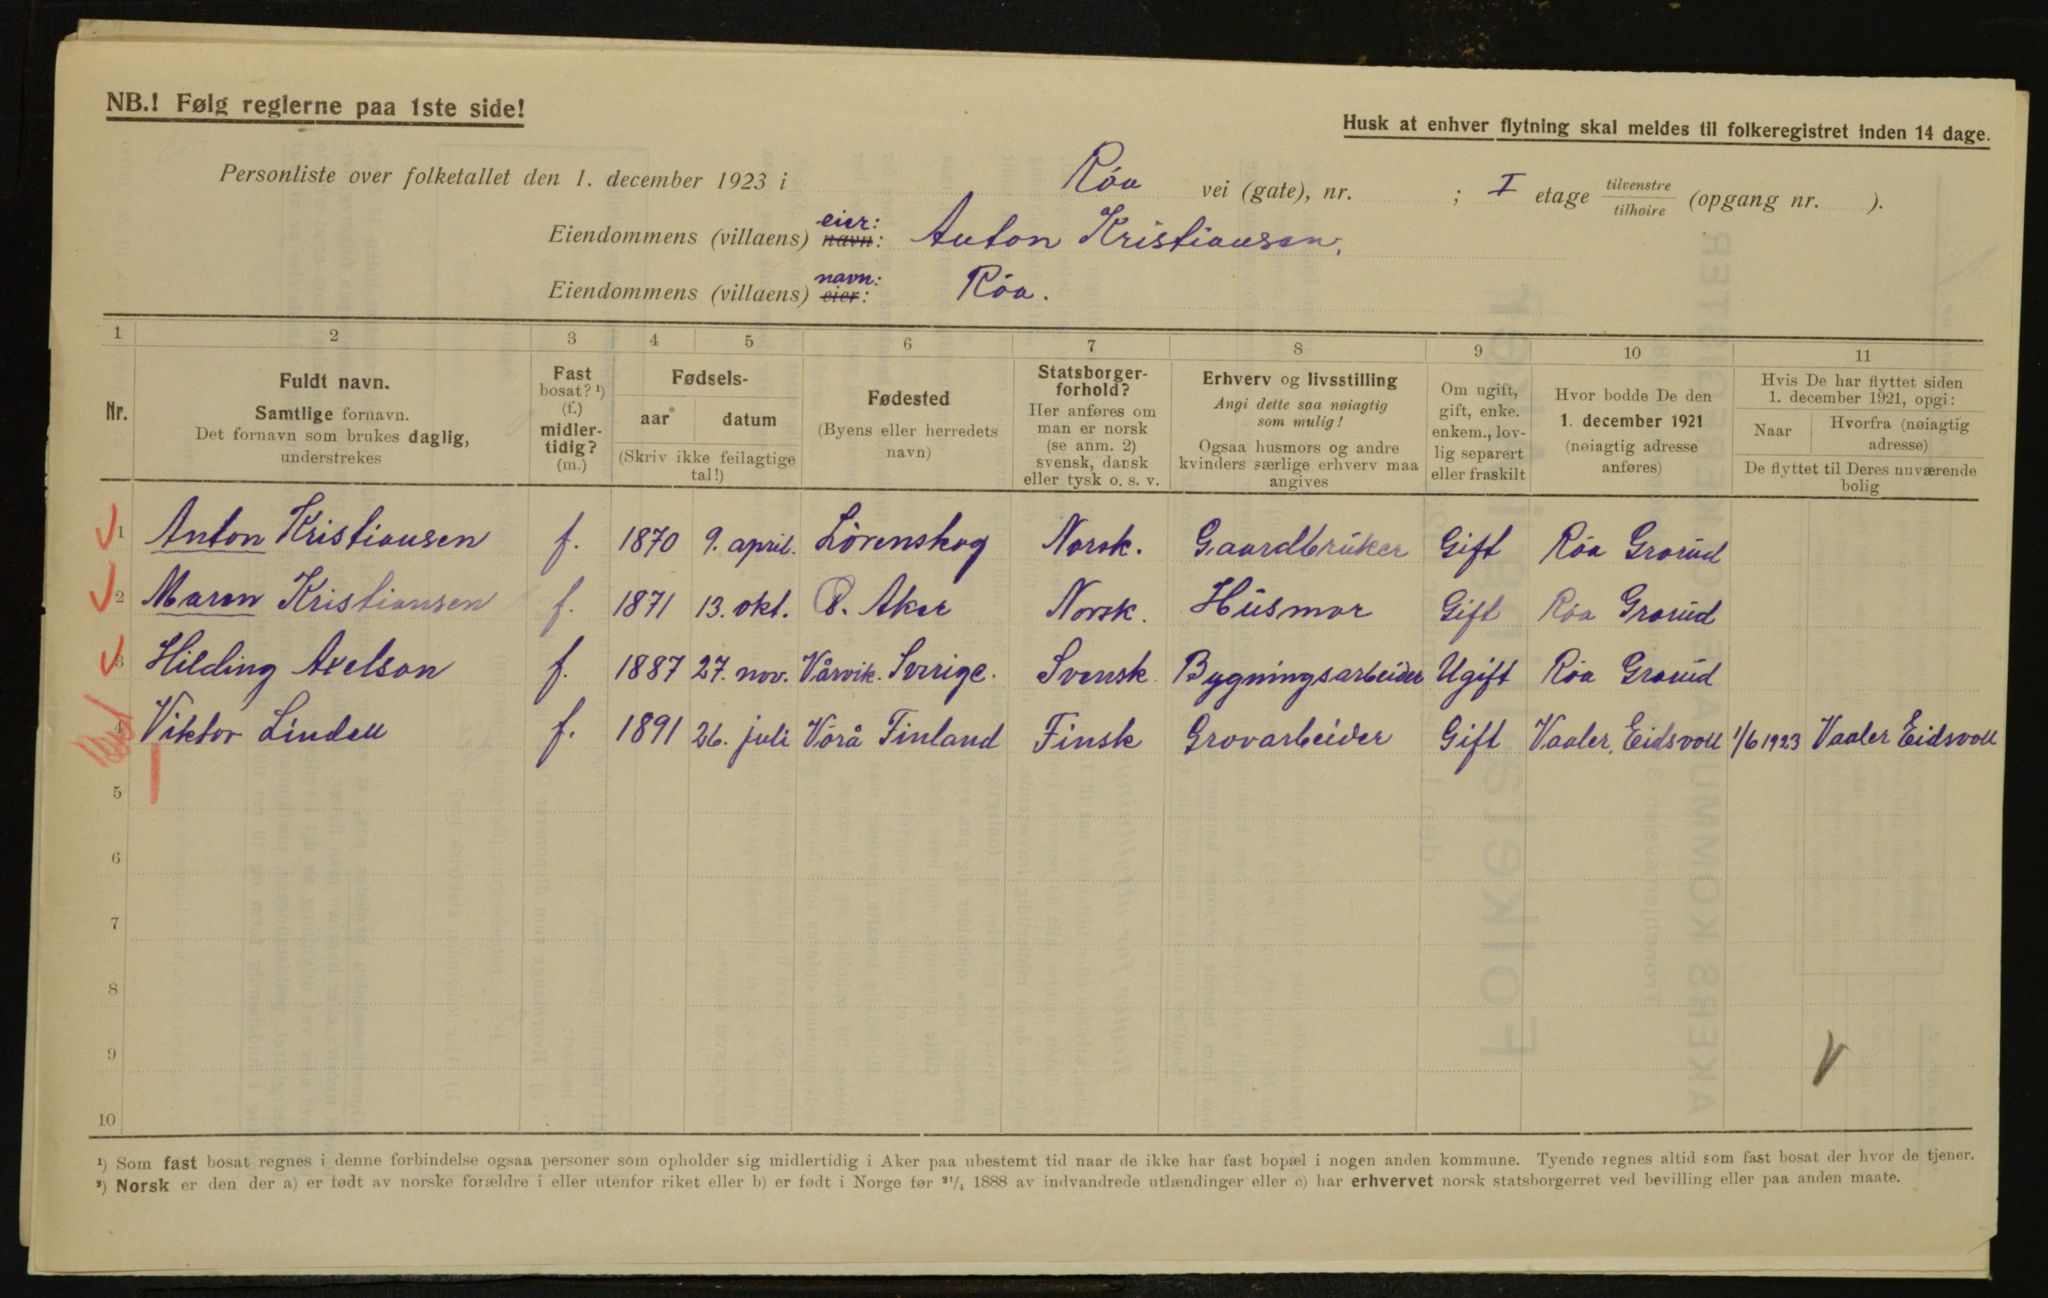 NB.! Følg reglerne paa 1ste side!
Husk at enhver flytning skal meldes til folkeregistret inden 14 dage.
Personliste over folketallet den 1. december 1923 i Røa vei (gate), nr. ; I etage tilvenstre tilhøire (opgang nr. ).
Eiendommens (villaens) navn: eier: Anton Kristiansen.
Eiendommens (villaens) eier: navn: Røa.
1 2 3 4 5 6 7 8 9 10 11
Nr.
Fuldt navn.
Samtlige fornavn.
Det fornavn som brukes daglig,
understrekes
Fast
bosat? ¹)
(f.)
midler-
tidig?
(m.)
Fødsels-
aar datum
(Skriv ikke feilagtige
tal!)
Fødested
(Byens eller herredets
navn)
Statsborger-
forhold?
Her anføres om
man er norsk
(se anm. 2)
svensk, dansk
eller tysk o. s. v.
Erhverv og livsstilling
Angi dette saa nøiagtig
som mulig!
Ogsaa husmors og andre
kvinders særlige erhverv maa
angives
Om ugift,
gift, enke.
enkem., lov-
lig separert
eller fraskilt
Hvor bodde De den
1. december 1921
(nøiagtig adresse
anføres)
Hvis De har flyttet siden
1. december 1921, opgi:
Naar
Hvorfra (nøiagtig
adresse)
De flyttet til Deres nuværende
bolig
1 Anton Kristiansen f. 1870 9. april. Lørenskog Norsk. Gaardbruker Gift Røa Grorud
2 Maren Kristiansen f. 1871 13. okt. Ø. Aker Norsk. Husmor Gift Røa Grorud
3 Hilding Axelson f. 1887 27. nov. Vårvik. Sverige. Svensk Bygningsarbeider Ugift Røa Grorud
4 Viktor Lindell f. 1891 26. juli Vörå Finland Finsk Grovarbeider Gift Vaaler, Eidsvoll 1/6 1923 Vaaler Eidsvoll
5
6
7
8
9
10
¹) Som fast bosat regnes i denne forbindelse ogsaa personer som opholder sig midlertidig i Aker paa ubestemt tid naar de ikke har fast bopæl i nogen anden kommune. Tyende regnes altid som fast bosat der hvor de tjener.
²) Norsk er den der a) er født av norske forældre i eller utenfor riket eller b) er født i Norge før ²¹/₄ 1888 av indvandrede utlændinger eller c) har erhvervet norsk statsborgerret ved bevilling eller paa anden maate.